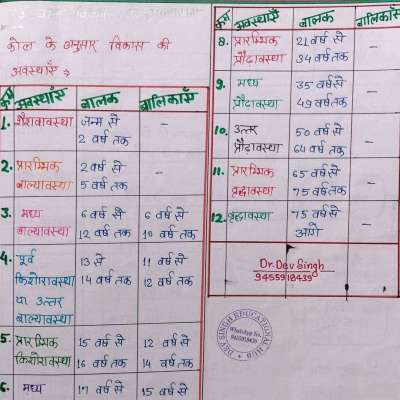 कोल के अनुसार विकास की
अवस्थाएँ →
क्र० अवस्थाएँ बालक बालिकाएँ
1. शैशवावस्था जन्म से
2 वर्ष तक –
2. प्रारम्भिक 2 वर्ष से
बाल्यावस्था 5 वर्ष तक –
3. मध्य 6 वर्ष से 6 वर्ष से
बाल्यावस्था 12 वर्ष तक 10 वर्ष तक
4. पूर्व 13 से 11 वर्ष से
किशोरावस्था 14 वर्ष तक 12 वर्ष तक
या उत्तर
बाल्यावस्था
5. प्रारम्भिक 15 वर्ष से 12 वर्ष से
किशोरावस्था 16 वर्ष तक 14 वर्ष तक
6. मध्य 17 वर्ष से 15 वर्ष से
अवस्थाएँ बालक बालिकाएँ
8. प्रारम्भिक 21 वर्ष से
प्रौढ़ावस्था 34 वर्ष तक –
9. मध्य 35 वर्ष से
प्रौढ़ावस्था 49 वर्ष तक –
10. उत्तर 50 वर्ष से
प्रौढ़ावस्था 64 वर्ष तक –
11. प्रारम्भिक 65 वर्ष से
वृद्धावस्था 75 वर्ष तक –
12. वृद्धावस्था 75 वर्ष से
आगे –
Dr. Dev Singh
9455918439
DEV SINGH EDUCATIONAL HUB
WhatsApp No.
9455918439